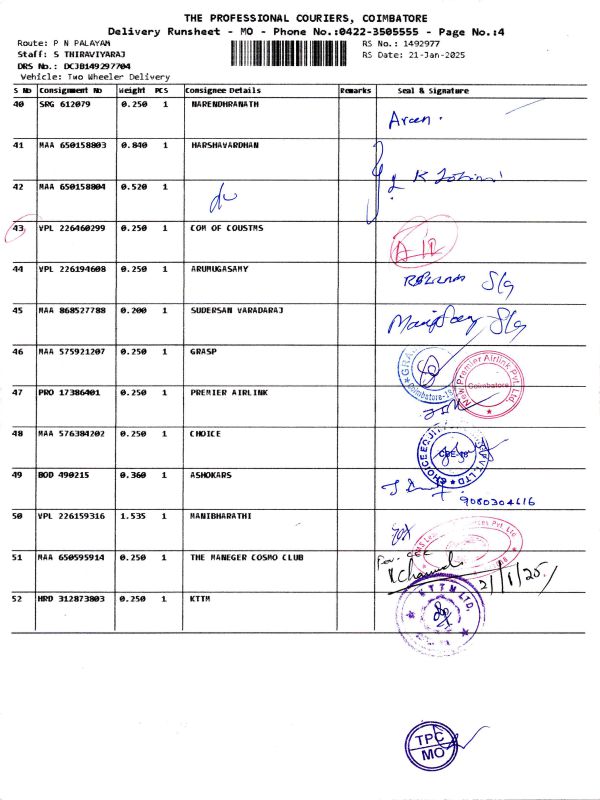 THE PROFESSIONAL COURIERS, COIMBATORE
Delivery Runsheet - MO - Phone No.:0422-3505555 - Page No.:4
Route: P N PALAYAM
RS No.: 1492977
Staff: S THIRAVIYARAJ
RS Date: 21-Jan-2025
DRS No.: DCJB149297704
Vehicle: Two Wheeler Delivery
S No Consignment No Weight PCS Consignee Details Remarks Seal & Signature
40 SRG 612079 0.250 1 NARENDHRANATH
41 MAA 650158803 0.840 1 HARSHAVARDHAN
42 MAA 650158804 0.520 1
43 VPL 226460299 0.250 1 COM OF COUSTMS
44 VPL 226194608 0.250 1 ARUMUGASAMY
45 MAA 868527788 0.200 1 SUDERSAN VARADARAJ
46 MAA 575921207 0.250 1 GRASP
New Premier Airlink Pvt. Ltd.
Coimbatore
47 PRO 17386401 0.250 1 PREMIER AIRLINK
48 MAA 576384202 0.250 1 CHOICE
49 BOD 490215 0.360 1 ASHOKARS
9080304616
50 VPL 226159316 1.535 1 MANIBHARATHI
51 MAA 650595914 0.250 1 THE MANEGER COSMO CLUB
21/1/25
52 HRD 312873803 0.250 1 KTTM
KTTM LTD.
TPC
MO